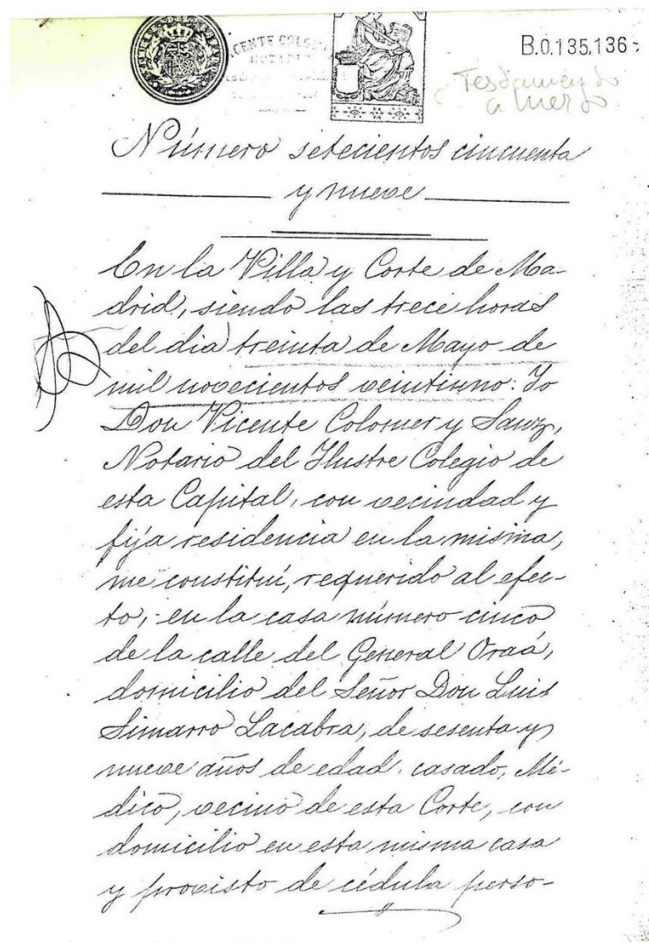 VICENTE COLOMER
NOTARIO
B.0.135,136
Testamento
Número setecientos cincuenta
y nueve
En la Villa y Corte de Ma-
drid, siendo las trece horas
del dia treinta de Mayo de
mil novecientos veintiuno: Yo
Don Vicente Colomer y Sanz,
Notario del Ilustre Colegio de
esta Capital, con vecindad y
fija residencia en la misma,
me constituí, requerido al efec-
to, en la casa número cinco
de la calle del General Oraá,
domicilio del Señor Don Luis
Simarro Lacabra, de sesenta y
nueve años de edad, casado, Mé-
dico, vecino de esta Corte, con
domicilio en esta misma casa
y provisto de cédula perso-